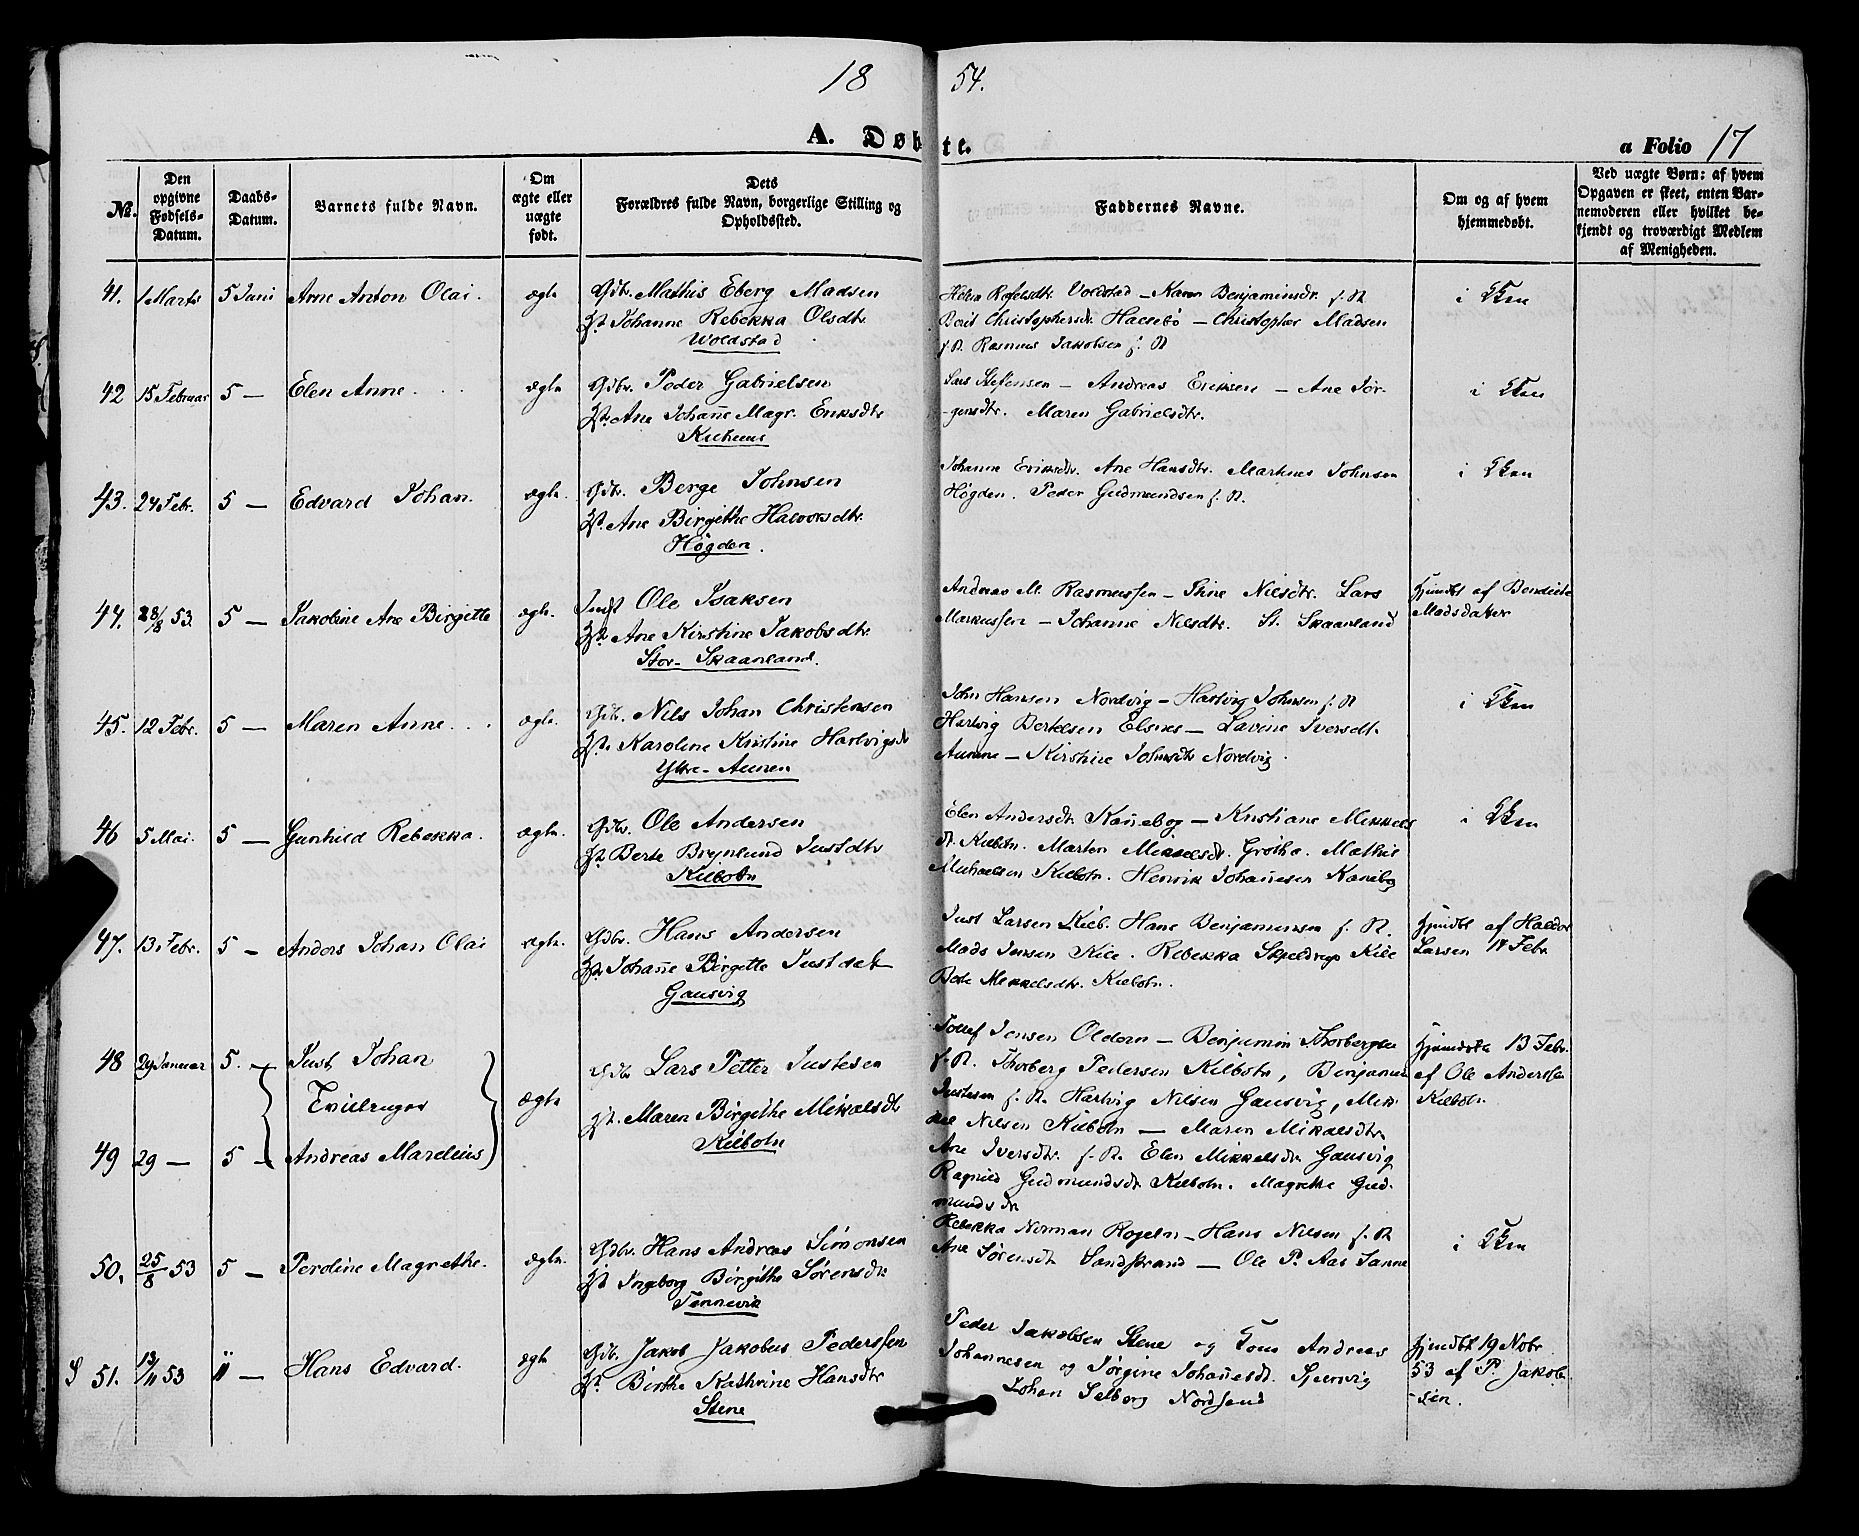 18 54.
A. Døbte.
a Folio 17
No.
Den opgivne Fødsels-Datum.
Daabs-Datum.
Barnets fulde Navn.
Om ægte eller uægte født.
Dets Forældres fulde Navn, borgerlige Stilling og Opholdssted.
Faddernes Navne.
Om og af hvem hjemmedøbt.
Ved uægte Børn: af hvem Opgaven er skeet, enten Barnemoderen eller hvilket bekjendt og troværdigt Medlem af Menigheden.
41. 1 Marts 5 Juni Arne Anton Olai. ægte
Gdbr. Mathis Eberg Madsen
Hst. Johanne Rebekka Olsdtr.
Woldstad
Voldstad - Karen Benjaminsdr. f. St.
Berit Christophersdr. - Christopher Madsen
f. St. Rasmus Jakobsen f. St
i Kken
42 15 Februar 5 - Elen Anne. ægte
Gdbr. Peder Gabrielsen
Hst. Ane Johane Magr. Eriksdtr
Lars Steffensen - Andreas Eriksen - Ane Jør-
gensdtr. Maren Gabrielsdtr.
i Kken
43. 24 Febr. 5 - Edvard Johan. ægte.
Gdbr. Berge Johnsen
Hst. Ane Birgithe Halvorsdtr.
Høgden.
Johanne Eriksdtr. Ane Hansdtr. Martines Johnsen
Høgden. Peder Gudmundsen f. St.
i Kken
44. 28/8 53. 5 - Jakoline Ane Birgitte ægte.
Indst Ole Isaksen
Hst. Ane Kirstine Jakobsdtr.
Stor-Skaanland.
Andreas M. Rasmussen - Stine Nilsdtr. Lars
Markussen - Johanne Nilsdtr. St. Skaanland
Hjmdbt af Bendicte
Madsdatter
45. 12 Febr. 5 - Maren Anne. ægte.
Gdbr. Nils Johan Christensen
Hst. Karoline Kristine Hartvigsdr
Ytre-Aunen
John Hansen Nordvig - Hartvig Johnsen f. St
Hartvig Bertelsen Elsnes - Lavine Iversdt.
Aunene - Kirstine Johnsdtr Nordvig.
i Kken
46 5 Mai. 5 - Gunhild Rebekka. ægte.
Gdbr. Ole Andersen
Hst Berte Brynlund Justdtr
Kilbotn
Elen Andersdt. Kanebog - Kristiane Mikkels
dt. Kilbotn. Marten Mikkelsdt. Grøtha. Mathis
Michaelsen Kilbotn. Henrik Johanesen Kanebog
i Kken
47. 13 Febr. 5 - Anders Johan Olai ægte.
Gdbr. Hans Andersen
Hst Johane Birgitte Justdat
Gausvig
Just Larsen Kilb. Hans Benjaminsen f. St.
Mads Jensen Kile. Rebekka Skjeldrup Kile
Berte Mikkelsdtr. Kilbotn.
Hjmdbt af Haldor
Larsen 14 Febr.
48 29 Januar 5. - Just Johan
Tvillinger
49 29 - 5 - Andreas Marelius
ægte
Gdbr Lars Petter Justesen
Hst. Maren Birgithe Mikkelsdtr
Kilbotn
Tollef Jensen Oldern - Benjamin Thorbergsen
f. St. Thorberg Pedersen Kilbotn, Benjamin
Justesen f. St. Hartvig Nilsen Gausvig, Mik-
kel Nilsen Kilbotn - Maren Mikkelsdtr
Ane Iversdtr. f. St. Elen Mikkelsdtr Gausvig
Ragnild Gudmundsdt. Kilbotn. Magrethe Gud-
mundsdr
Hjmdøbte 13 Febr.
af Ole Anderssen
Kilbotn.
50. 25/8 53 5 - Perdine Magrethe. ægte.
Gdbr. Hans Andreas Simonsen
Hst Ingeborg Birgithe Sørensdtr
Tennevik
Rebekka Norman Rogeln - Hans Nilsen f. St
Ane Sørensdt. Sandstrand - Ole P. Aas Sanne
i Kken
S 51. 13/11 53 11 - Hans Edvard. ægte
Gdbr. Jakob Jakobus Pederssen
Hst. Birthe Kathrine Hansdtr
Stene
Peder Jakobsen Stene og Andreas
Johannesen og Jørgine Johanesdt. Gjervig
Johan Selborg Nordsand
Hjmdbt 19 Nobr
53 af P. Jakob-
sen.